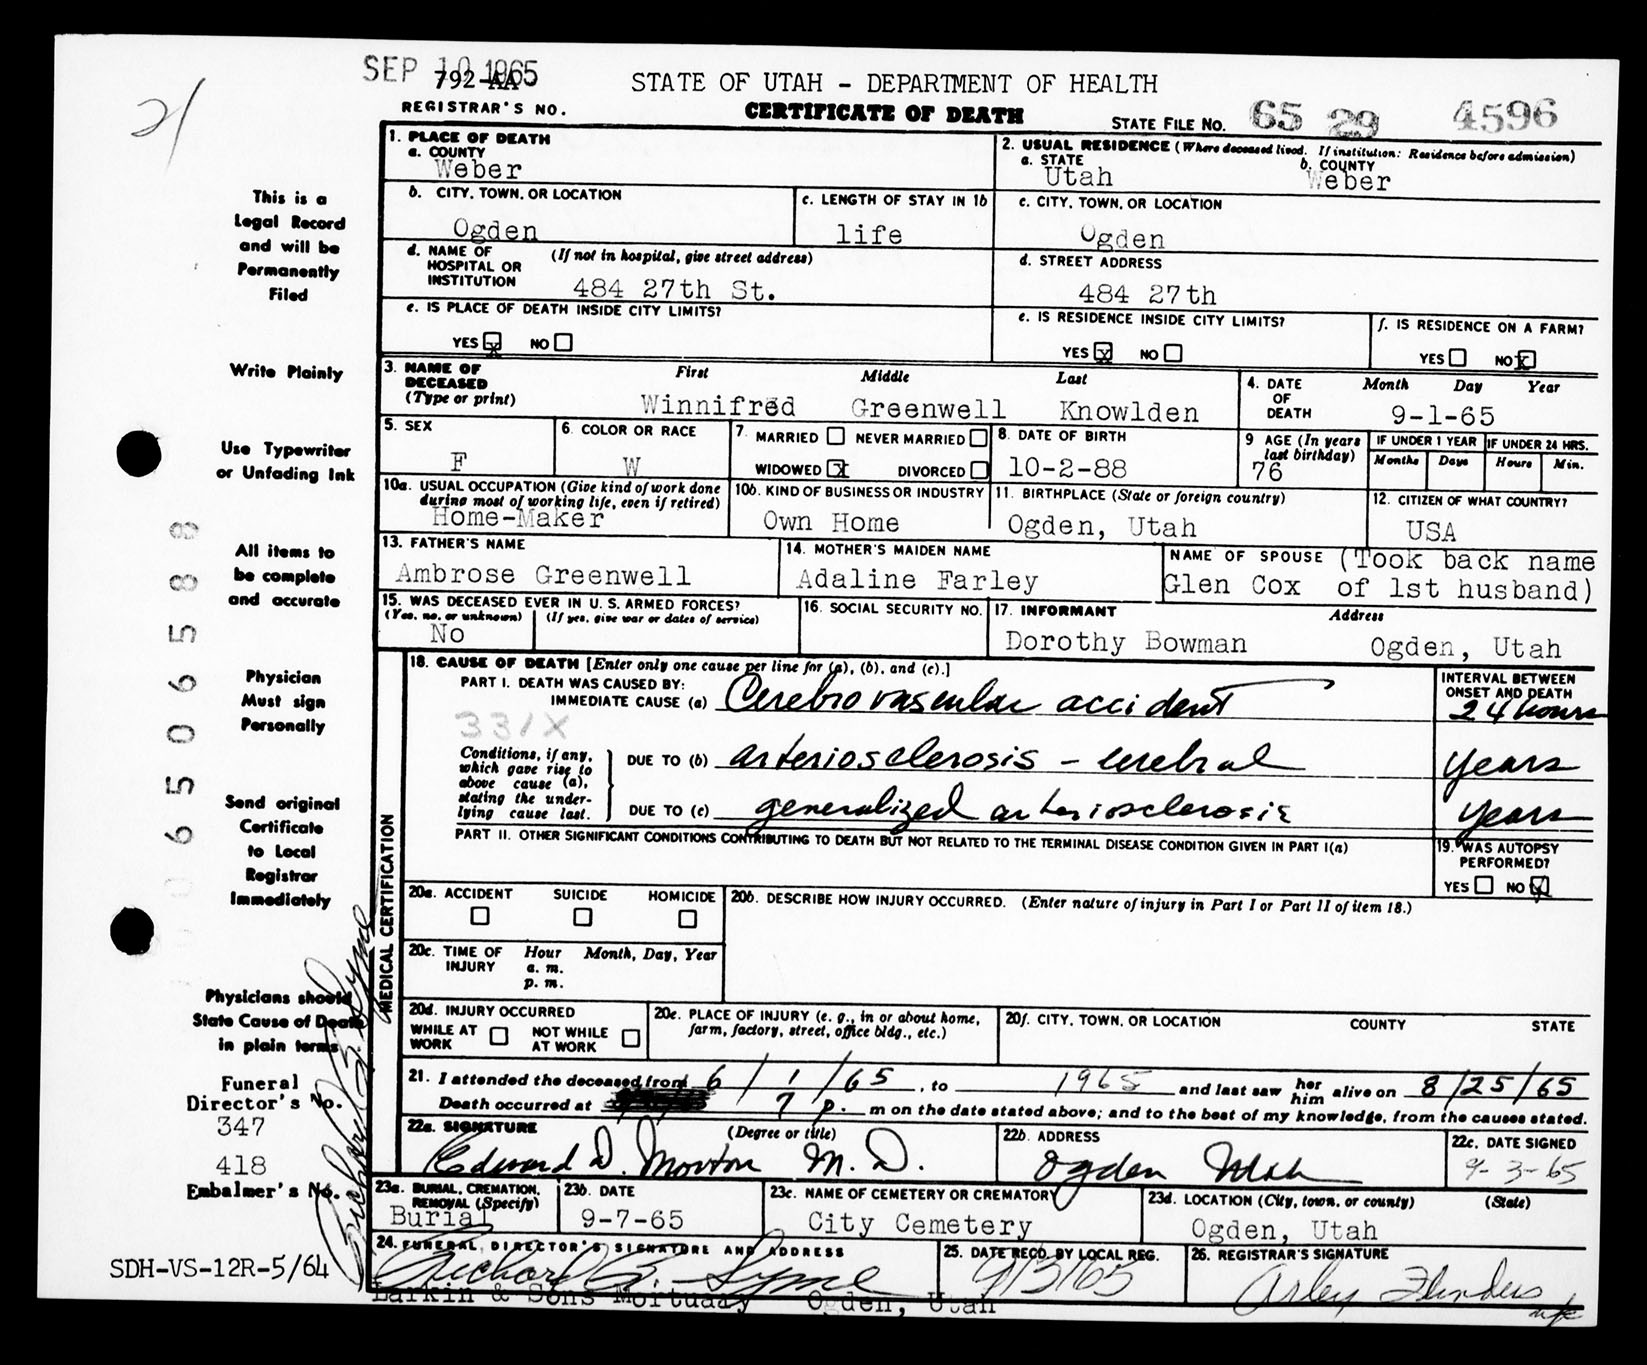 21
SEP 10 1965
792-AA
REGISTRAR'S NO.
STATE OF UTAH - DEPARTMENT OF HEALTH
CERTIFICATE OF DEATH
STATE FILE NO. 65 29 4596
This is a
Legal Record
and will be
Permanently
Filed
Write Plainly
Use Typewriter
or Unfading Ink
All items to
be complete
and accurate
Physician
Must sign
Personally
Send original
Certificate
to Local
Registrar
Immediately
Physicians should
State Cause of Death
in plain terms
Funeral
Director's No.
347
418
Embalmer's No.
SDH-VS-12R-5/64
1. PLACE OF DEATH
a. COUNTY
Weber
2. USUAL RESIDENCE (Where deceased lived. If institution: Residence before admission)
a. STATE b. COUNTY
Utah Weber
b. CITY, TOWN, OR LOCATION
Ogden
c. LENGTH OF STAY IN 1b
life
c. CITY, TOWN, OR LOCATION
Ogden
d. NAME OF (If not in hospital, give street address)
HOSPITAL OR
INSTITUTION 484 27th St.
d. STREET ADDRESS
484 27th
e. IS PLACE OF DEATH INSIDE CITY LIMITS?
YES x NO
e. IS RESIDENCE INSIDE CITY LIMITS?
YES x NO
f. IS RESIDENCE ON A FARM?
YES NO x
3. NAME OF First Middle Last
DECEASED
(Type or print) Winnifred Greenwell Knowlden
4. DATE Month Day Year
OF
DEATH 9-1-65
5. SEX
F
6. COLOR OR RACE
W
7. MARRIED NEVER MARRIED
WIDOWED x DIVORCED
8. DATE OF BIRTH
10-2-88
9 AGE (In years
last birthday)
76
IF UNDER 1 YEAR IF UNDER 24 HRS.
Months Days Hours Min.
10a. USUAL OCCUPATION (Give kind of work done
during most of working life, even if retired)
Home-Maker
10b. KIND OF BUSINESS OR INDUSTRY
Own Home
11. BIRTHPLACE (State or foreign country)
Ogden, Utah
12. CITIZEN OF WHAT COUNTRY?
USA
13. FATHER'S NAME
Ambrose Greenwell
14. MOTHER'S MAIDEN NAME
Adaline Farley
NAME OF SPOUSE (Took back name
Glen Cox of 1st husband)
15. WAS DECEASED EVER IN U. S. ARMED FORCES?
(Yes, no, or unknown) (If yes, give war or dates of service)
No
16. SOCIAL SECURITY NO.
17. INFORMANT Address
Dorothy Bowman Ogden, Utah
MEDICAL CERTIFICATION
18. CAUSE OF DEATH [Enter only one cause per line for (a), (b), and (c).]
PART I. DEATH WAS CAUSED BY:
IMMEDIATE CAUSE (a) Cerebrovascular accident
331X
INTERVAL BETWEEN
ONSET AND DEATH
24 hours
Conditions, if any,
which gave rise to
above cause (a),
stating the under-
lying cause last.
DUE TO (b) arteriosclerosis - cerebral years
DUE TO (c) generalized arteriosclerosis years
PART II. OTHER SIGNIFICANT CONDITIONS CONTRIBUTING TO DEATH BUT NOT RELATED TO THE TERMINAL DISEASE CONDITION GIVEN IN PART I(a)
19. WAS AUTOPSY
PERFORMED?
YES NO x
20a. ACCIDENT SUICIDE HOMICIDE
20b. DESCRIBE HOW INJURY OCCURRED. (Enter nature of injury in Part I or Part II of item 18.)
20c. TIME OF Hour Month, Day, Year
INJURY a. m.
p. m.
20d. INJURY OCCURRED
WHILE AT NOT WHILE
WORK AT WORK
20e. PLACE OF INJURY (e. g., in or about home,
farm, factory, street, office bldg., etc.)
20f. CITY, TOWN, OR LOCATION COUNTY STATE
21. I attended the deceased from 6/1/65, to 1965 and last saw her him alive on 8/25/65
Death occurred at 7 p. m on the date stated above; and to the best of my knowledge, from the causes stated.
22a. SIGNATURE (Degree or title)
Edward D. Morton M. D.
22b. ADDRESS
Ogden Utah
22c. DATE SIGNED
9-3-65
23a. BURIAL, CREMATION,
REMOVAL (Specify)
Burial
23b. DATE
9-7-65
23c. NAME OF CEMETERY OR CREMATORY
City Cemetery
23d. LOCATION (City, town, or county) (State)
Ogden, Utah
24. FUNERAL DIRECTOR'S SIGNATURE AND ADDRESS
Richard B. Lyne
Larkin & Sons Mortuary Ogden, Utah
25. DATE RECD. BY LOCAL REG.
9/3/65
26. REGISTRAR'S SIGNATURE
Arley Flinders
Richard B. Lyne
0065506588